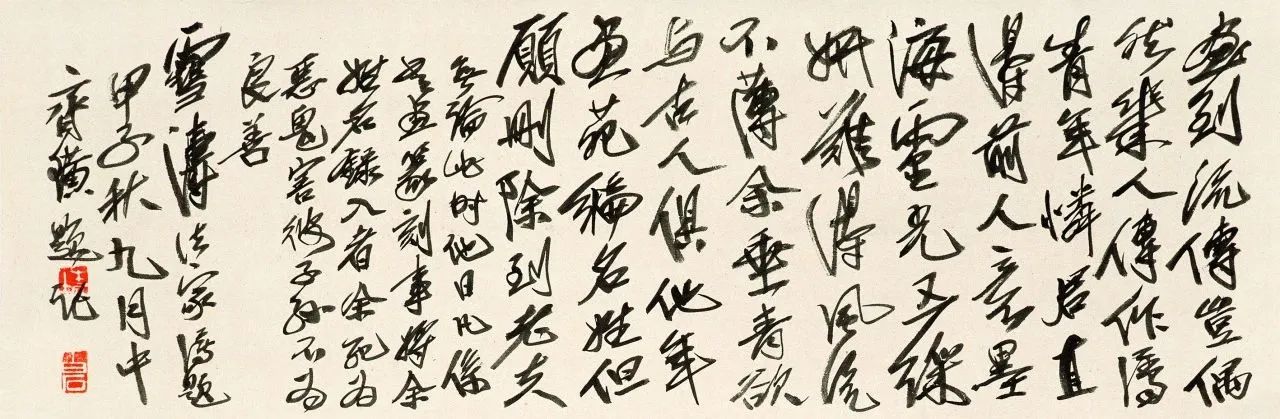 畫到流傳豈偶
然幾人傳作屬
青年憐君直
得前人意墨
海靈光又
妍難得風流
不薄余垂青欲
与古人俱他年
畫苑編名姓但
願刪除到老夫
無論此時他日凡係
書畫篆刻事將余
姓名錄入者余死為
惡鬼害彼子孫不為
良善
雪濤法家屬題
甲子秋九月中
齊璜題記